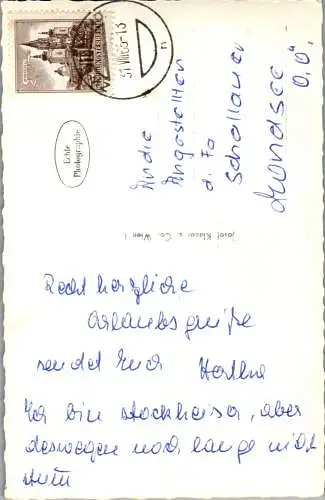 Recht herzliche
Urlaubsgrüße
sendet Euch Hertha
Ich bin stockheiser, aber
deswegen noch lange nicht
stumm
An die
Angestellten
d. Fa
Schallauer
Mondsee
O.Ö.
Echte
Photographie
Josef Klaser u. Co. Wien I.